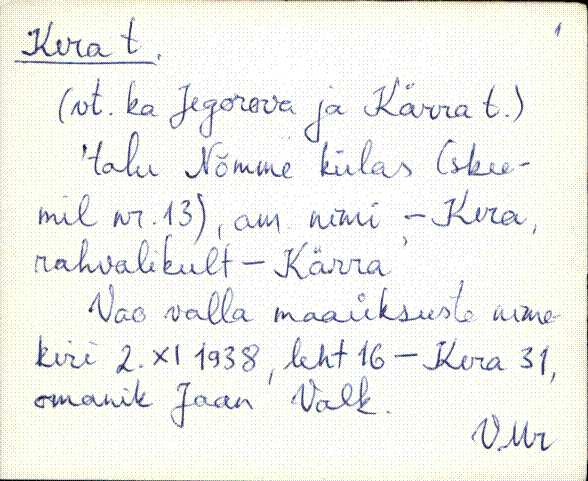 1
Kera t.
(vt. ka Jegorova ja Kärra t.)
'talu Nõmme külas (skee-
mil nr. 13), am. nimi - Kera,
rahvalikult - Kärra
Vao valla maaüksuste nime-
kiri 2. XI 1938, leht 16 - Kera 31,
omanik Jaan Valk.
V.Mr